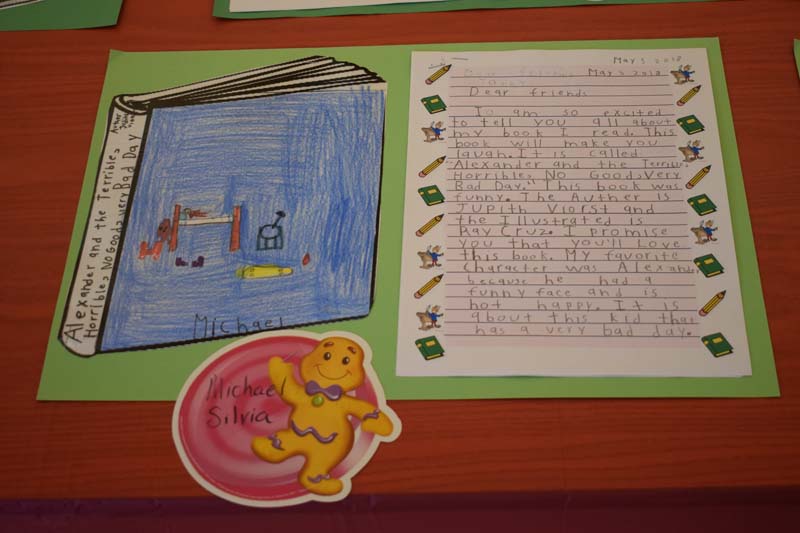 Alexander and the Terrible,
Horrible, No Good, very Bad Day
Author
Michael
Michael
Silvia
May 3 2018
Dear friends May 3 2018
Dear friends
I am so excited
to tell you all about
my book I read. This
book will make you
laugh. It is called
"Alexander and the Terrible,
Horrible, NO Good, Very
Bad Day." This book was
funny. The Auther is
JUPITH Viorst and
the Illustrated is
Ray Cruz. I promise
you that you'll Love
this book. My favorite
character was Alexander
because he had a
funny face and is
not happy. It is
about this kid that
has a very bad day.